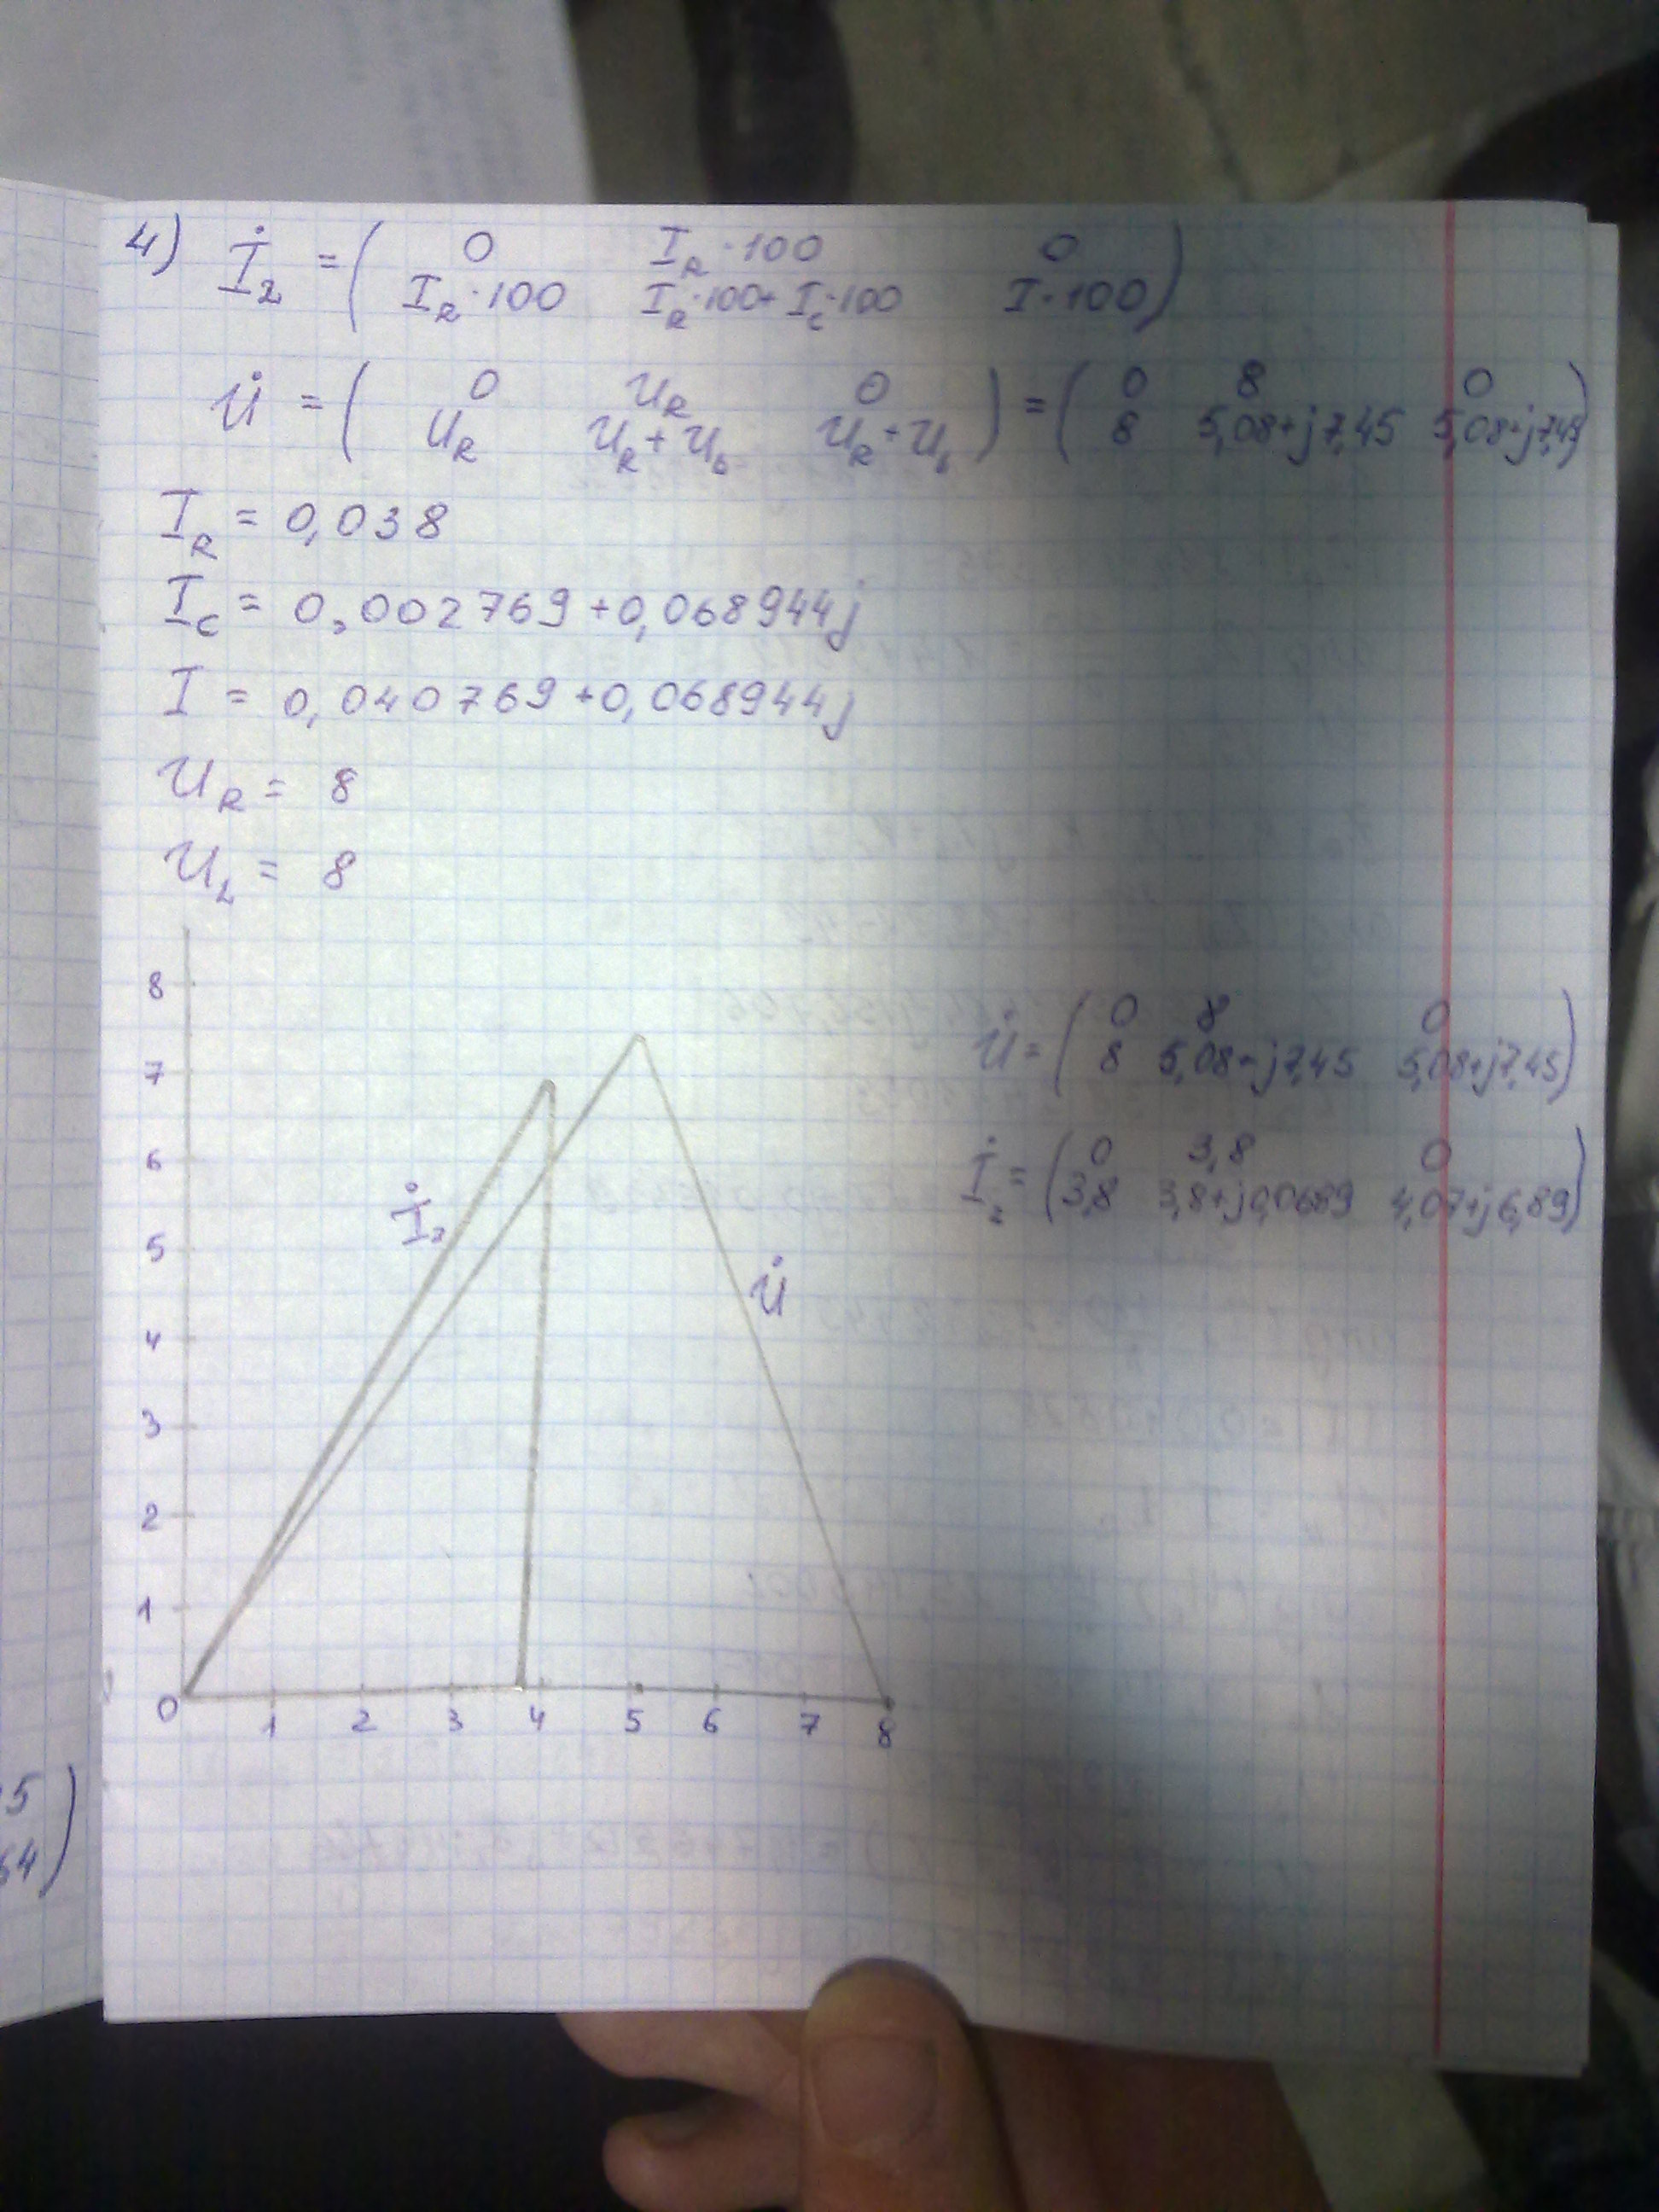 4) İ₂ = ( 0 I_R·100 0
I_R·100 I_R·100+I_c·100 I·100 )
U̇ = ( 0 U_R 0 ) = ( 0 8 0 )
U_R U_R+U_b U_R+U_b 8 5,08+j7,45 5,08+j7,45
I_R = 0,038
I_c = 0,002769+0,068944j
I = 0,040769+0,068944j
U_R = 8
U_L = 8
8
7
6
5
4
3
2
1
0 1 2 3 4 5 6 7 8
İ₂
U̇
U̇ = ( 0 8 0
8 5,08-j7,45 5,08+j7,45 )
İ₂ = ( 0 3,8 0
3,8 3,8+j0,0689 4,07+j6,89 )
5
64 )